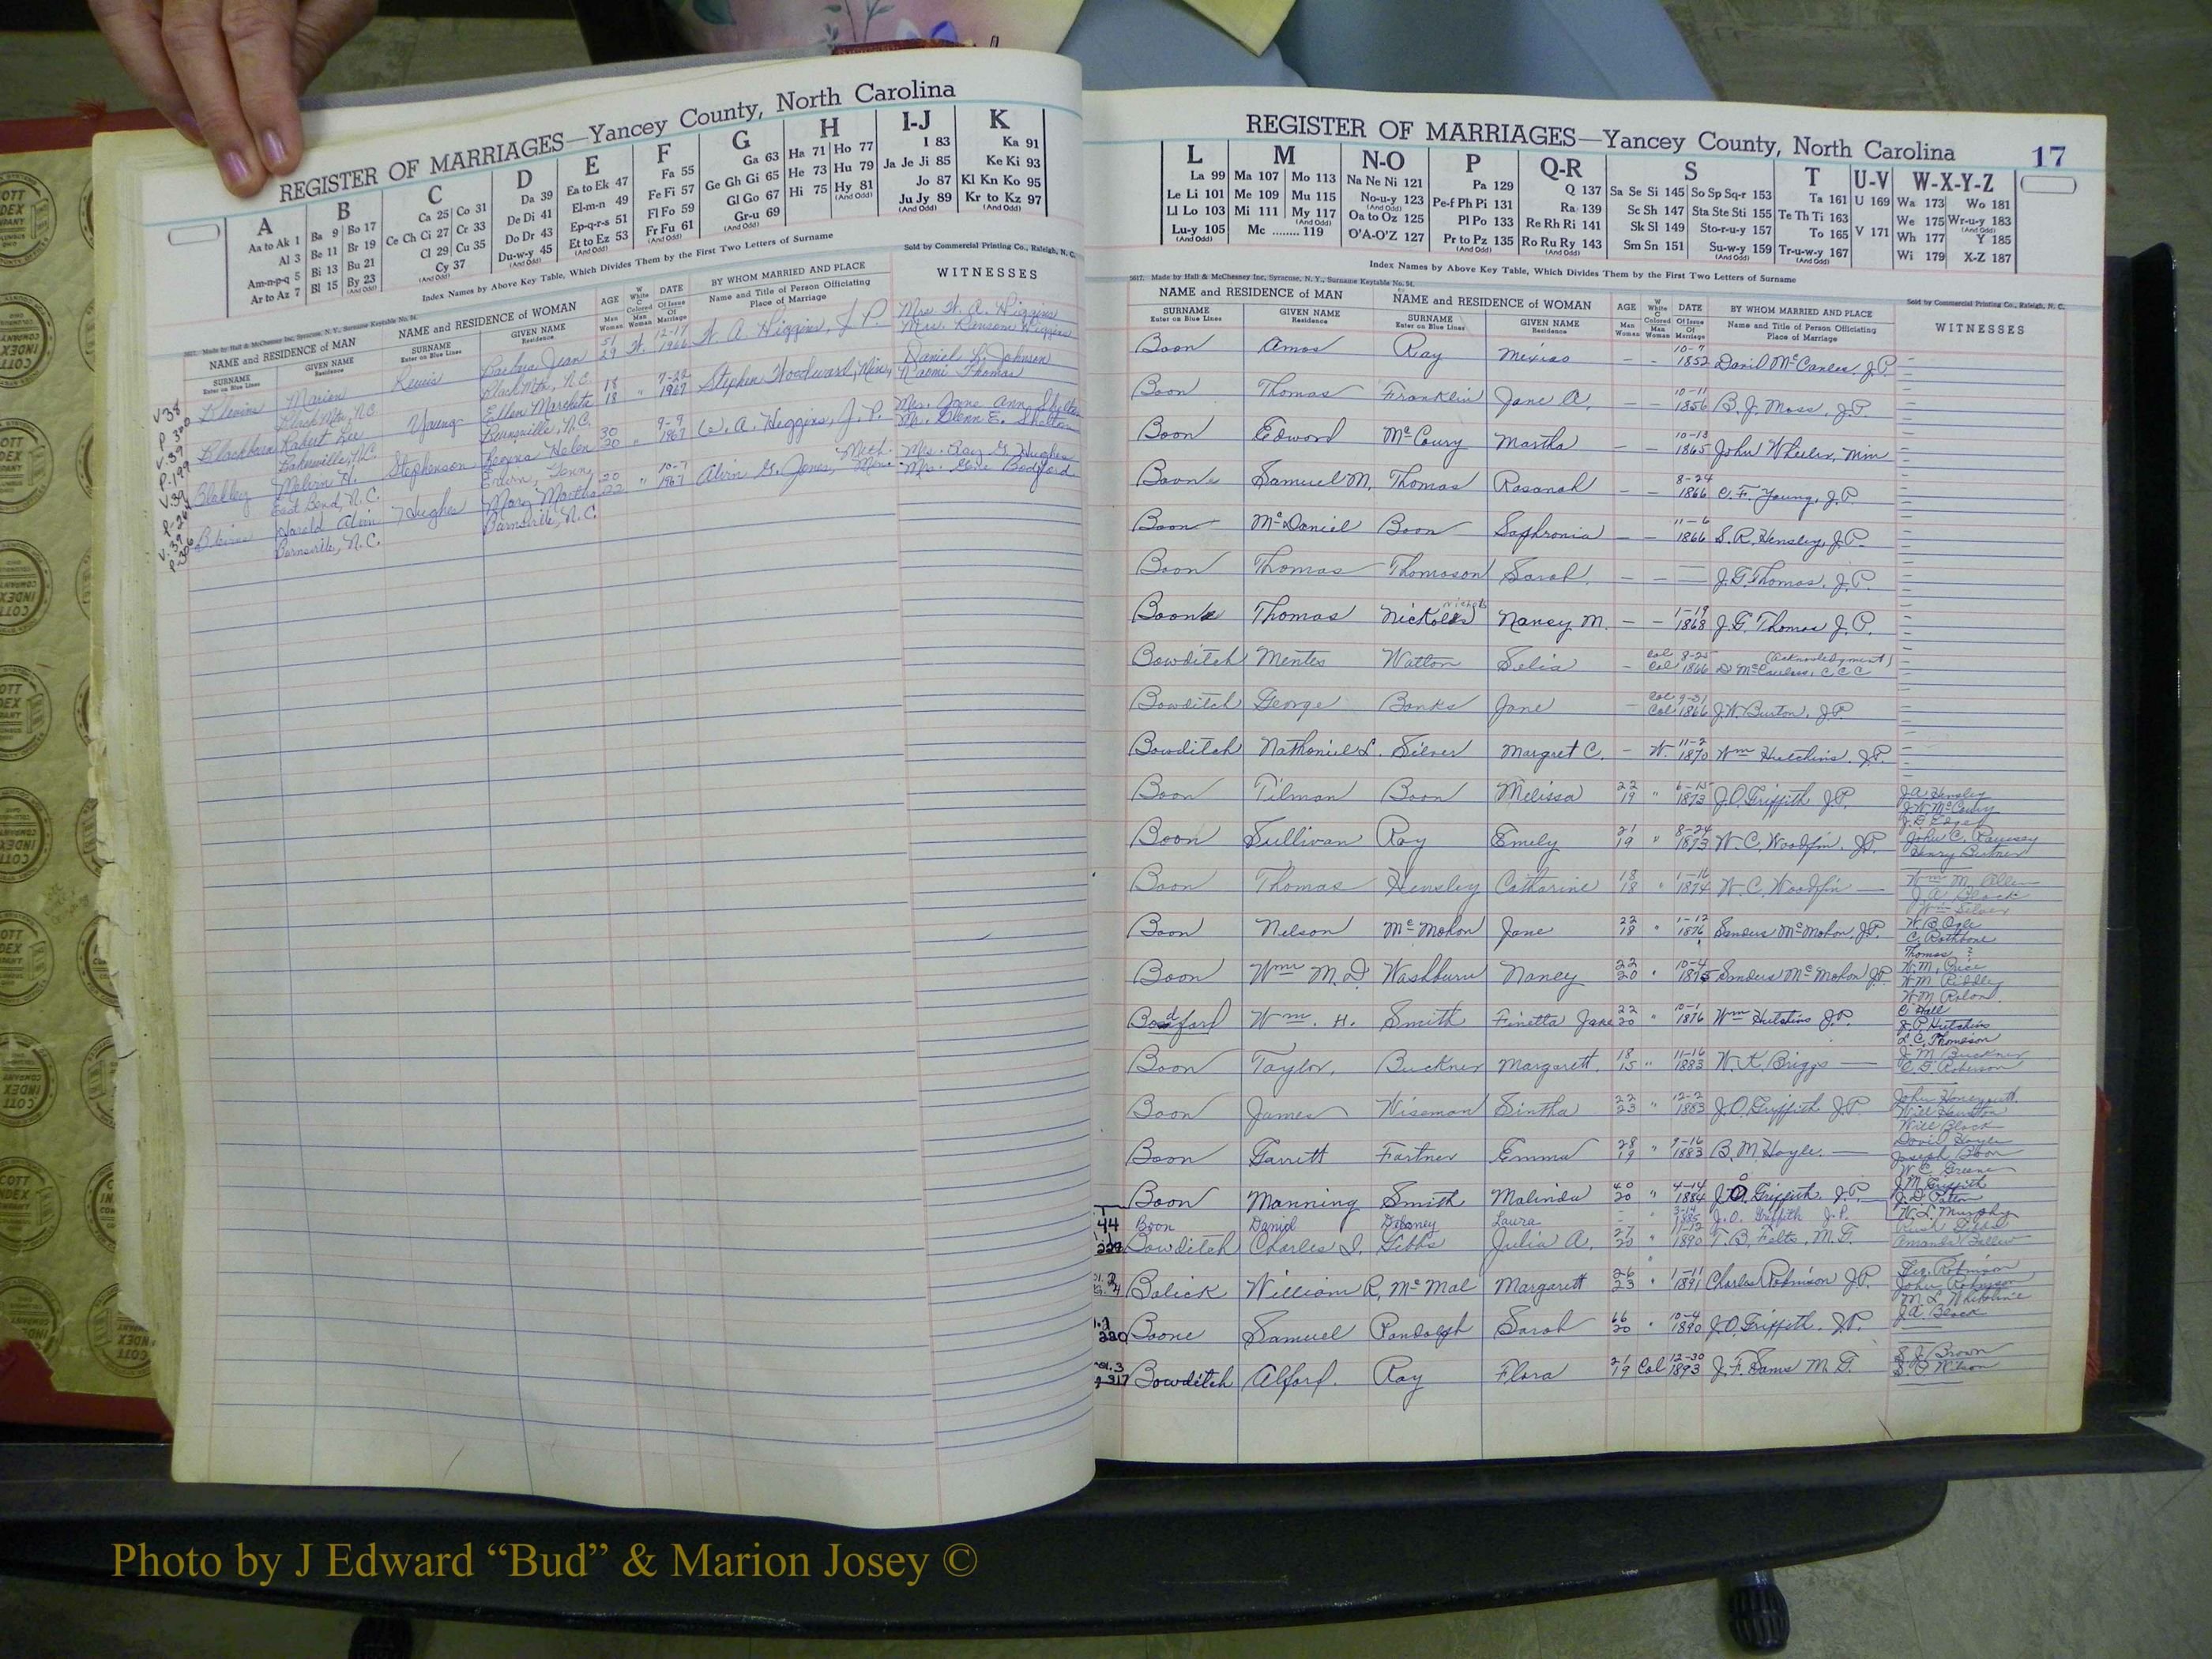 REGISTER OF MARRIAGES—Yancey County, North Carolina
A B C D E F G H I-J K
Aa to Ak 1 Ba 9 Bo 17 Ca 25 Co 31 Da 39 Ea to Ek 47 Fa 55 Ga 63 Ha 71 Ho 77 I 83 Ka 91
Al 3 Be 11 Br 19 Ce Ch Ci 27 Cr 33 De Di 41 El-m-n 49 Fe Fi 57 Ge Gh Gi 65 He 73 Hu 79 Ja Je Ji 85 Ke Ki 93
Am-n-p-q 5 Bi 13 Bu 21 Cl 29 Cu 35 Do Dr 43 Ep-q-r-s 51 Fl Fo 59 Gl Go 67 Hi 75 Hy 81 (And Odd) Jo 87 Kl Kn Ko 95
Ar to Az 7 Bl 15 By 23 (And Odd) Cy 37 (And Odd) Du-w-y 45 (And Odd) Et to Ez 53 Fr Fu 61 (And Odd) Gr-u 69 (And Odd) Ju Jy 89 (And Odd) Kr to Kz 97 (And Odd)
Index Names by Above Key Table, Which Divides Them by the First Two Letters of Surname
Sold by Commercial Printing Co., Raleigh, N. C.
NAME and RESIDENCE of MAN NAME and RESIDENCE of WOMAN AGE DATE BY WHOM MARRIED AND PLACE WITNESSES
SURNAME Enter on Blue Lines GIVEN NAME Residence SURNAME Enter on Blue Lines GIVEN NAME Residence Man Woman W White C Colored Man Woman Of Issue Of Marriage Name and Title of Person Officiating Place of Marriage
Marion Lewis Barbara Jean 51 29 W. 12-17 1966 W. A. Higgins, J. P. Mrs. W. A. Higgins
Black Mtn., N.C. Black Mtn., N.C. Mrs. Ransom Higgins
Blackburn Robert Lee Young Ellen Marcheta 18 18 7-22 1967 Stephen Woodward, Min. Daniel L. Johnson
Bakersville, N.C. Burnsville, N.C. Naomi Thomas
Melvin H. Stephenson Regina Helen 30 20 " 9-9 1967 W. A. Higgins, J. P. Mrs. Jane Ann Shelton
East Bend, N.C. Erwin, Tenn. Mr. Glenn E. Shelton
Harold Alvin Hughes Mary Martha 20 22 " 10-7 1967 Alvin G. Jones, Meth. Min. Mrs. Ray G. Hughes
Burnsville, N.C. Burnsville, N.C. Mrs. Gene Bodford
REGISTER OF MARRIAGES—Yancey County, North Carolina 17
L M N-O P Q-R S T U-V W-X-Y-Z
La 99 Ma 107 Mo 113 Na Ne Ni 121 Pa 129 Q 137 Sa Se Si 145 So Sp Sq-r 153 Ta 161 U 169 Wa 173 Wo 181
Le Li 101 Me 109 Mu 115 No-u-y 123 (And Odd) Pe-f Ph Pi 131 Ra 139 Sc Sh 147 Sta Ste Sti 155 Te Th Ti 163 We 175 Wr-u-y 183 (And Odd)
Ll Lo 103 Mi 111 My 117 (And Odd) Oa to Oz 125 Pl Po 133 Re Rh Ri 141 Sk Sl 149 Sto-r-u-y 157 To 165 V 171 Wh 177 Y 185
Lu-y 105 (And Odd) Mc ........ 119 O'A-O'Z 127 Pr to Pz 135 (And Odd) Ro Ru Ry 143 Sm Sn 151 Su-w-y 159 (And Odd) Tr-u-w-y 167 (And Odd) Wi 179 X-Z 187
Index Names by Above Key Table, Which Divides Them by the First Two Letters of Surname
5617. Made by Hall & McChesney Inc, Syracuse, N. Y., Surname Keytable No. 54. Sold by Commercial Printing Co., Raleigh, N. C.
NAME and RESIDENCE of MAN NAME and RESIDENCE of WOMAN AGE DATE BY WHOM MARRIED AND PLACE WITNESSES
SURNAME Enter on Blue Lines GIVEN NAME Residence SURNAME Enter on Blue Lines GIVEN NAME Residence Man Woman W White C Colored Man Woman Of Issue Of Marriage Name and Title of Person Officiating Place of Marriage
Boon Amos Ray — - 10-7 1852 David McCanles, J.P.
Boon Thomas Franklin Jane A. — 10-11 1856 B. J. Moss, J.P.
Boon Edword McCoury Martha — - 10-13 1865 John Wheeler, Min
Boone Samuel M. Thomas Rosanah — - 8-24 1866 C. F. Young, J.P.
Boon McDaniel Boon Saphronia — - 11-6 1866 S. R. Hensley, J.P.
Boon Thomas Thomason Sarah — - — J. G. Thomas, J.P.
Boone Thomas Nickols Nichols Nancy M. — - 1-19 1868 J. G. Thomas J.P.
Bowditch Mentes Watton Selia - Col Col 8-25 1866 (Acknowledgment) D. McCanless, C C C
Bowditch George Banks Jane - Col Col 1866 J. W. Burton, J.P.
Bowditch Nathaniel L. Silver Margret C. - W. 11-2 1870 Wm Hutchins J.P.
Boon Tilman Boon Melissa 22 19 " 6-15 1873 J. O. Griffith J.P. J. A. Hensley
J. W. McCoury
Boon Sullivan Ray Emily 21 19 " 8-24 1873 W. C. Woodfin, J.P. John C. Ramsey
Boon Thomas Hensley Catharine 18 18 " 1-16 1874 W. C. Woodfin — J. A. Black
Wm Silver
Boon Nelson McMohon Jane 22 18 " 1-12 1876 Sanders McMohon, J.P. W. B. Ogle
C. Rathbone
Boon Wm M. D. Washburn Nancy 22 20 " 10-4 1875 Sanders McMohon J.P. Thomas ?
W. M. Price
W. M. Riddley
Bodford Wm. H. Smith Finetta Jane 22 20 " 10-1 1876 Wm Hutchins J.P. C. Hall
J. P. Hutchins
L. C. Thomason
Boon Taylor Buckner Margarett 18 15 " 11-16 1883 W. K. Briggs — J. M. Buckner
C. G. Roberson
Boon James Wiseman Sintha 22 23 " 12-2 1883 J. O. Griffith J.P. John Honeycutt
Will Houston
Will Black
Boon Garrett Fortner Emma 28 19 " 9-16 1883 B. M. Hoyle — David Hoyle
Joseph Boon
W. C. Greene
Boon Manning Smith Malinda 40 20 " 4-14 1884 J. O. Griffith, J.P. J. M. Griffith
J. D. Patton
44 Boon Daniel Deboney Laura - " 3-14 1885 J. O. Griffith J.P. W. L. Murphy
228 Bowditch Charles I. Gibbs Julia A. 27 20 " 11-12 1890 T. B. Felts, M.G.
Bolick William R. McMal Margarett 26 23 " 1-11 1891 Charles Robinson J.P. Geo. Robinson
John Robinson
230 Boone Samuel Randolph Sarah 66 20 " 10-4 1890 J. O. Griffith, J.P. J. A. Black
317 Bowditch Alford Ray Flora 21 19 Col 12-30 1893 J. F. Sams M.G. S. J. Brown
S. P. Wilson
Photo by J Edward “Bud” & Marion Josey ©